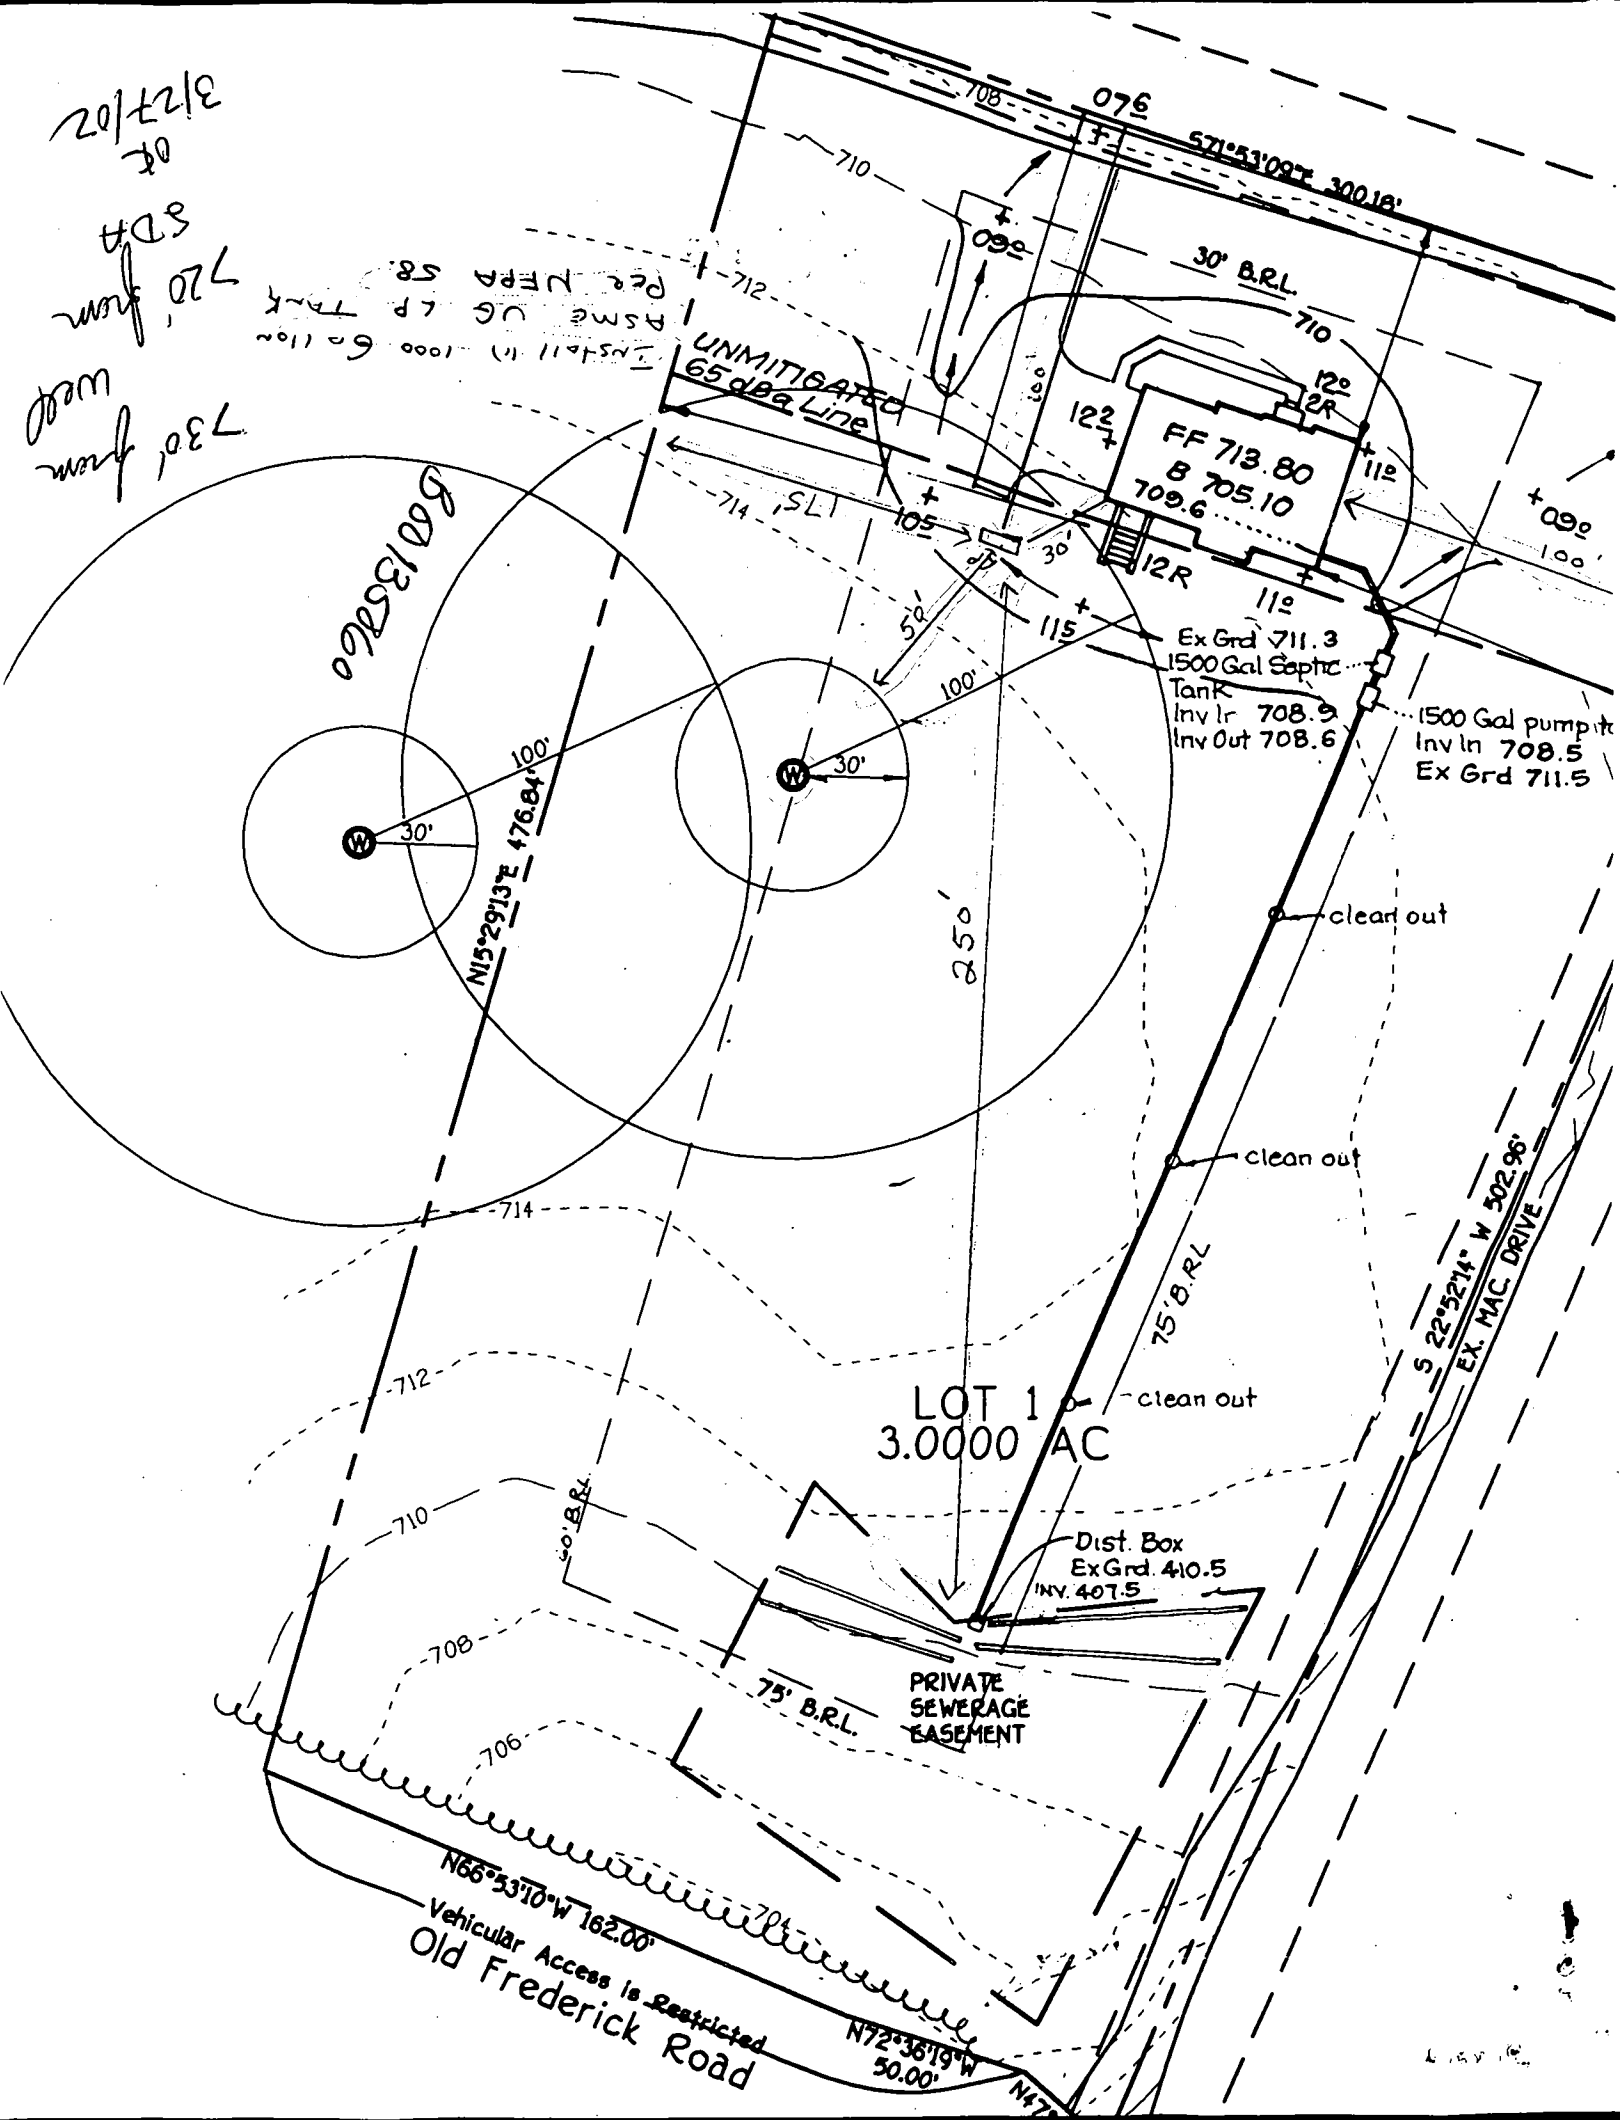 3/27/02
OK
SDA
720' from
730' from
well
Install (1) 1000 Gallon
ASME UG LP TANK
Per NFPA 58.
B00135860
708
07⁶
S71°53'09"E 300.18'
710
09⁰
30' B.R.L.
712
710
UNMITIGATED
65 dBa Line
12⁰
2R
12²
FF 713.80
B 705.10
709.6
11⁰
09⁰
100'
714
175'
10⁵
LP
30'
12R
11⁰
50'
11⁵
Ex Grd 711.3
1500 Gal Septic
Tank
Inv In 708.9
Inv Out 708.6
1500 Gal pump
Inv In 708.5
Ex Grd 711.5
100'
100'
W
30'
W
30'
N15°29'13"E 476.84'
250'
clean out
clean out
714
75' B.R.L.
S 22°52'14" W 502.96'
EX. MAC. DRIVE
712
LOT 1
3.0000 AC
clean out
710
60' B.R.L.
Dist. Box
Ex Grd. 410.5
INV. 407.5
708
75' B.R.L.
PRIVATE
SEWERAGE
EASEMENT
706
704
N66°53'10"W 162.00'
Vehicular Access is Restricted
Old Frederick Road
N72°36'19"W
50.00'
N47°